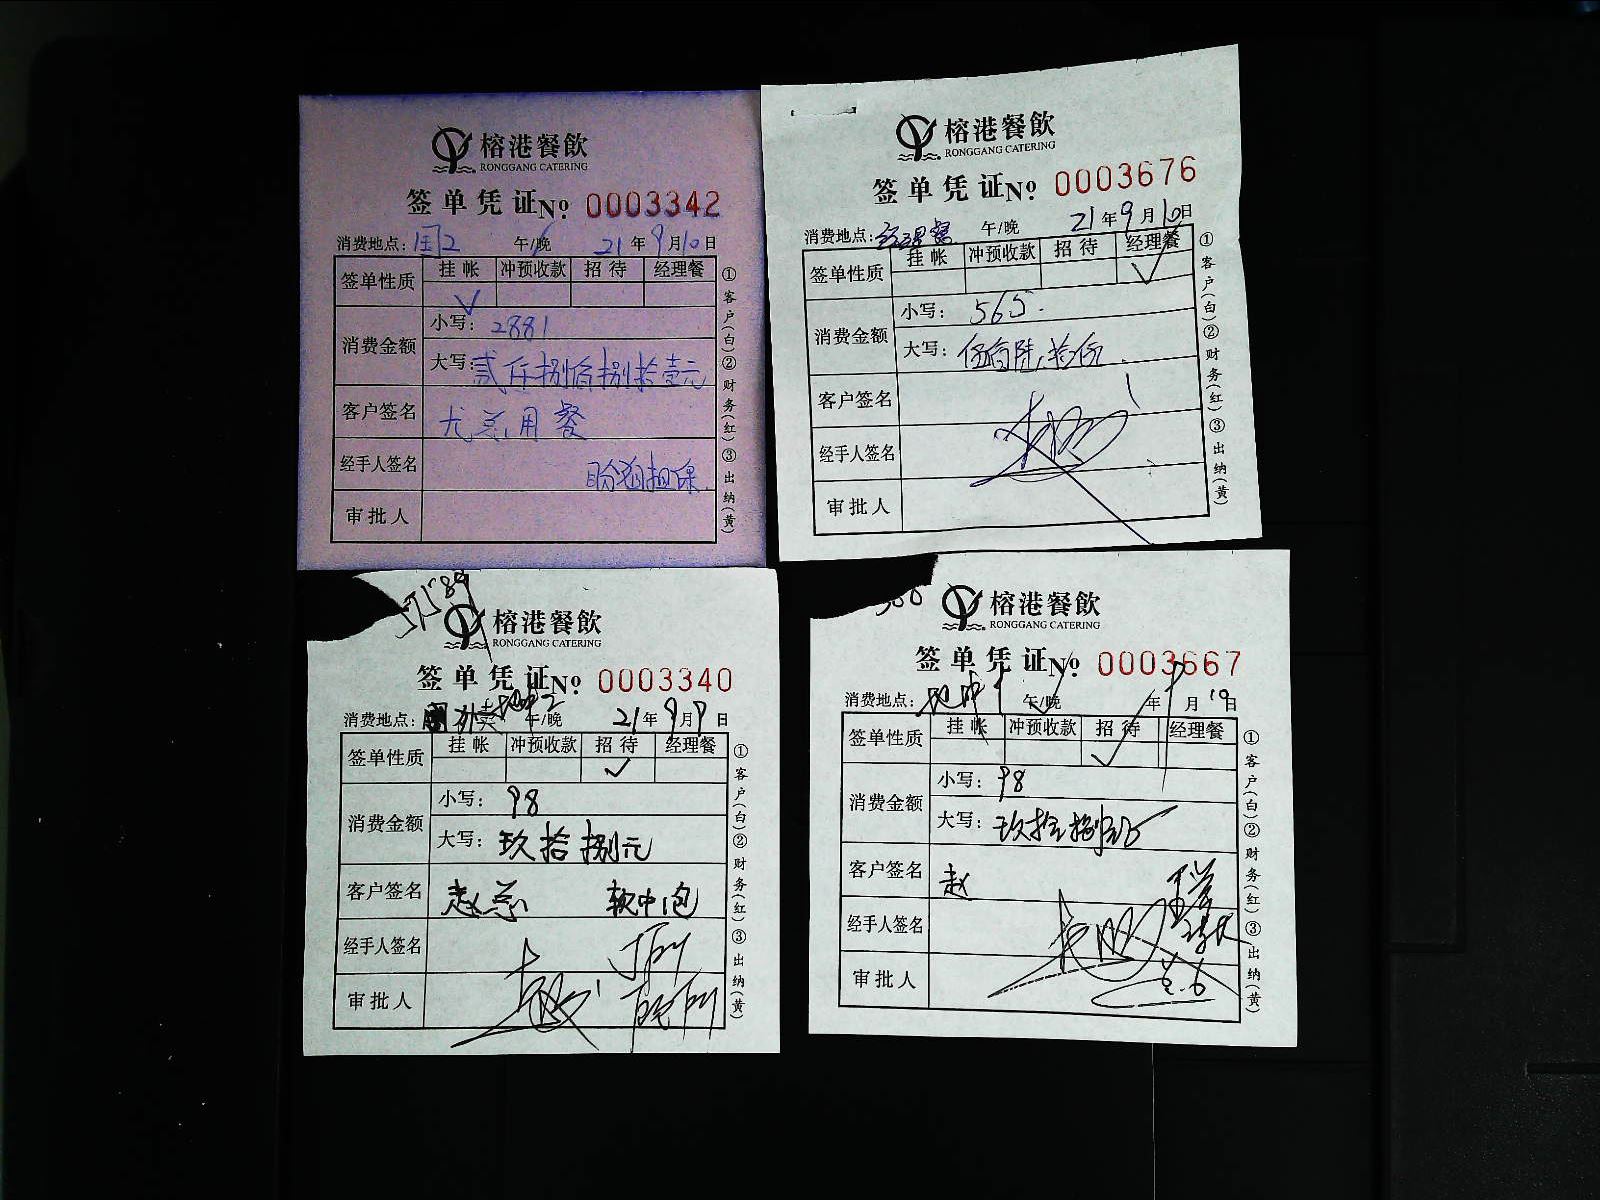 榕港餐飲
RONGGANG CATERING
签单凭证No. 0003342
消费地点: 午/晚 21年9月10日
签单性质 挂帐 冲预收款 招待 经理餐
✓
消费金额
小写: 2881
大写: 贰仟捌佰捌拾壹元
客户签名 尤总用餐
经手人签名 担保
审批人
①客户(白)②财务(红)③出纳(黄)
榕港餐飲
RONGGANG CATERING
签单凭证No. 0003676
消费地点: 经理餐 午/晚 21年9月10日
签单性质 挂帐 冲预收款 招待 经理餐
✓
消费金额
小写: 565.
大写: 伍佰陆拾伍
客户签名
经手人签名
审批人
①客户(白)②财务(红)③出纳(黄)
榕港餐飲
RONGGANG CATERING
签单凭证No. 0003340
消费地点: 外卖 午/晚 21年9月9日
签单性质 挂帐 冲预收款 招待 经理餐
✓
消费金额
小写: 98
大写: 玖拾捌元
客户签名 赵总 软中1包
经手人签名
审批人
①客户(白)②财务(红)③出纳(黄)
榕港餐飲
RONGGANG CATERING
签单凭证No. 0003667
消费地点: 午/晚 年9月10日
签单性质 挂帐 冲预收款 招待 经理餐
✓
消费金额
小写: 98
大写: 玖拾捌
客户签名 赵
经手人签名
审批人
①客户(白)②财务(红)③出纳(黄)